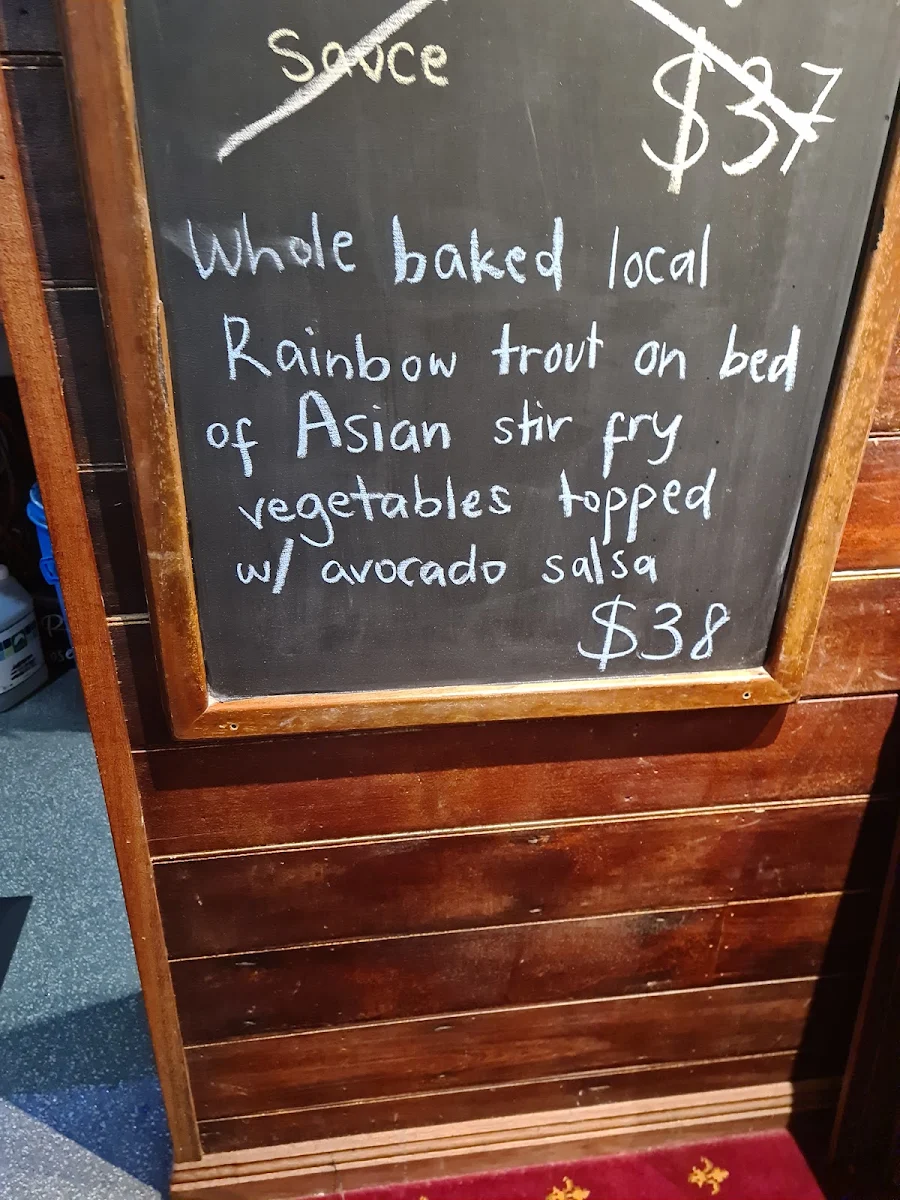 Sauce
$37
Whole baked local
Rainbow trout on bed
of Asian stir fry
vegetables topped
w/ avocado salsa
$38